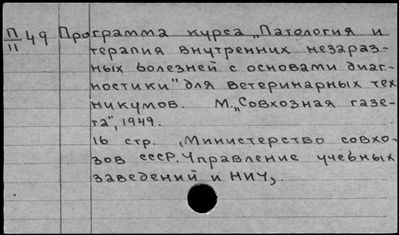 П/11 49 Программа курса „Патология и
терапия внутренних незараз-
ных болезней с основами диаг-
ностики" для ветеринарных тех
никумов. М. „Совхозная газе-
та", 1949.
16 стр. (Министерство совхо-
зов СССР. Управление учебных
заведений и НИУ).